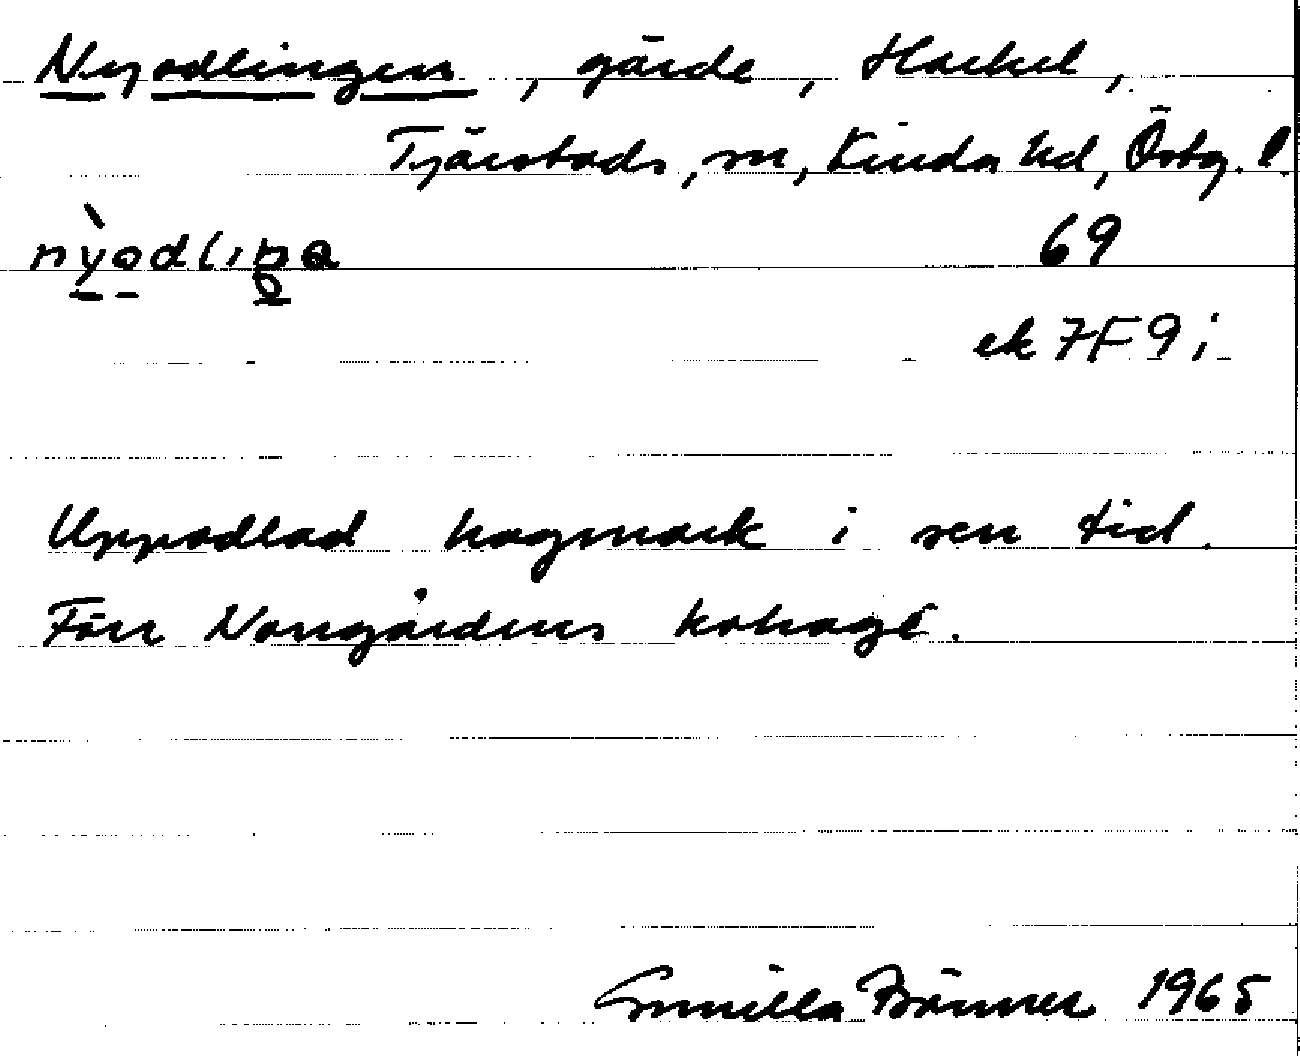 Nyodlingen, gärde, Hackel,
Tjärstads, sn, Kinda hd, Östg. l.
nỳodlıŋa
69
ek 7F9i
Uppodlad hagmark i sen tid.
Förr Norrgårdens kohage.
Gunilla 1965